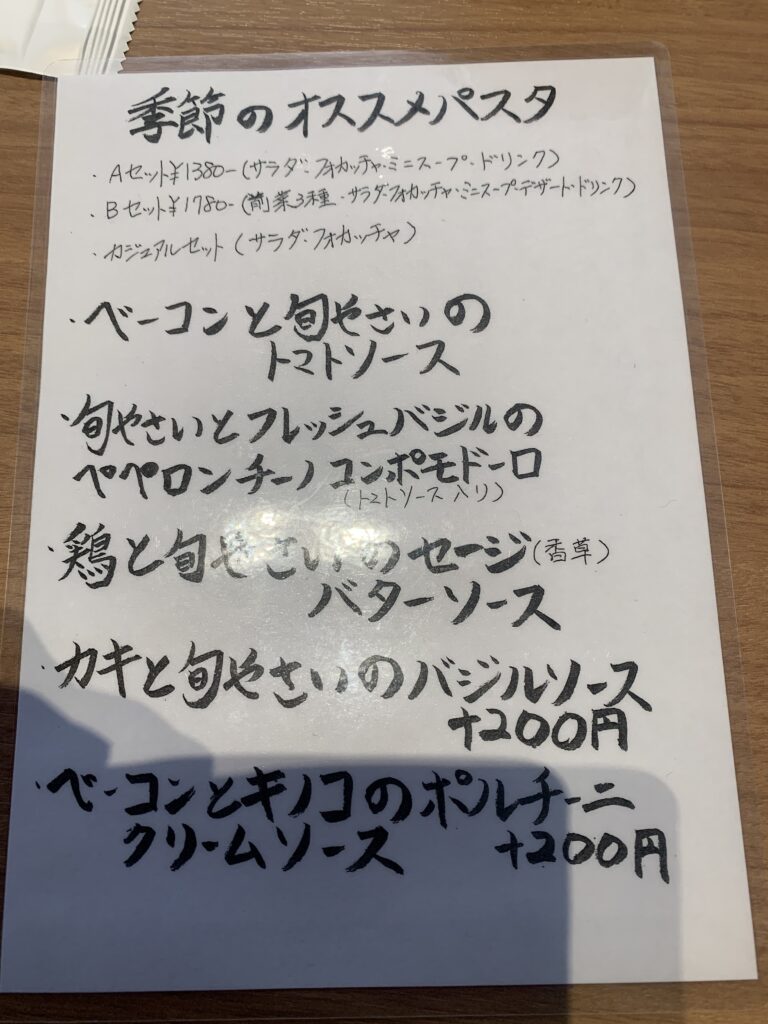 季節のオススメパスタ
・Aセット¥1380-(サラダ・フォカッチャ・ミニスープ・ドリンク)
・Bセット¥1780-(前菜3種・サラダ・フォカッチャ・ミニスープ・デザート・ドリンク)
・カジュアルセット(サラダ・フォカッチャ)
・ベーコンと旬やさいの
トマトソース
・旬やさいとフレッシュバジルの
ペペロンチーノコンポモドーロ
(トマトソース入り)
・鶏と旬やさいのセージ(香草)
バターソース
・カキと旬やさいのバジルソース
+200円
・ベーコンとキノコのポルチーニ
クリームソース +200円